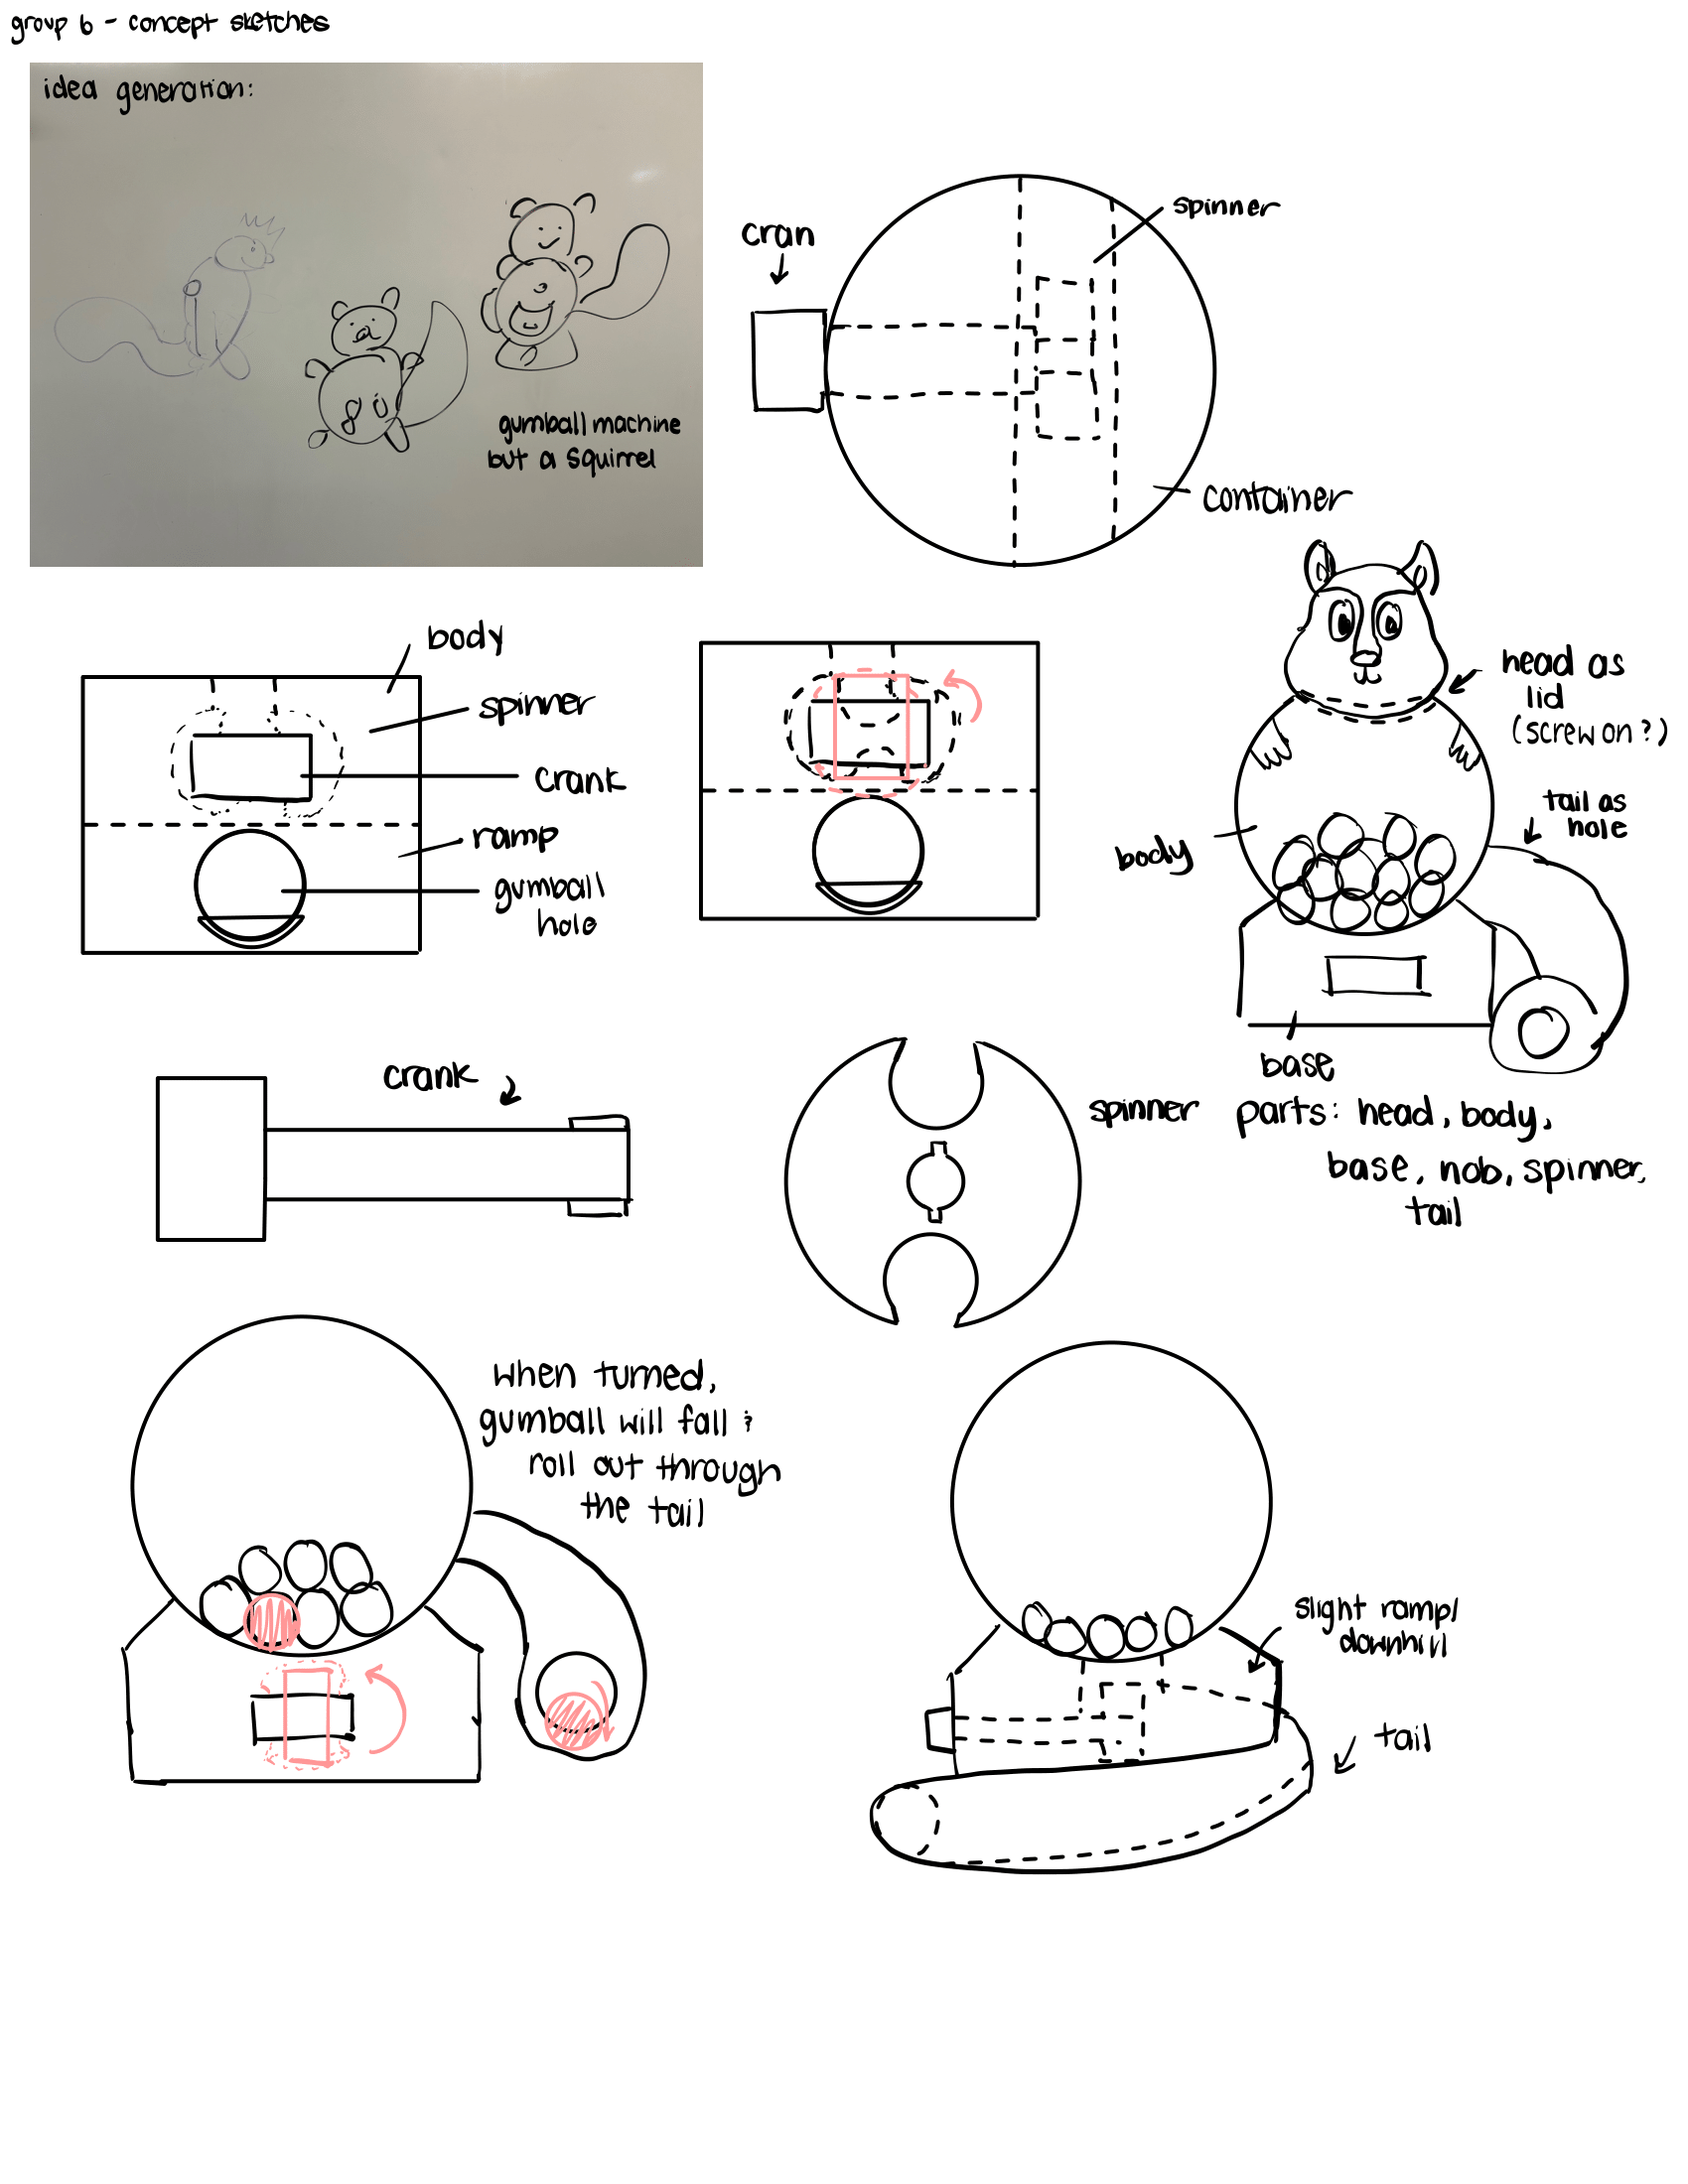 group 6 - concept sketches
idea generation:
gumball machine
but a squirrel
cran
spinner
container
body
spinner
crank
ramp
gumball
hole
head as
lid
(screw on?)
tail as
hole
body
base
crank
spinner
parts: head, body,
base, nob, spinner,
tail
when turned,
gumball will fall &
roll out through
the tail
slight ramp/
downhill
tail